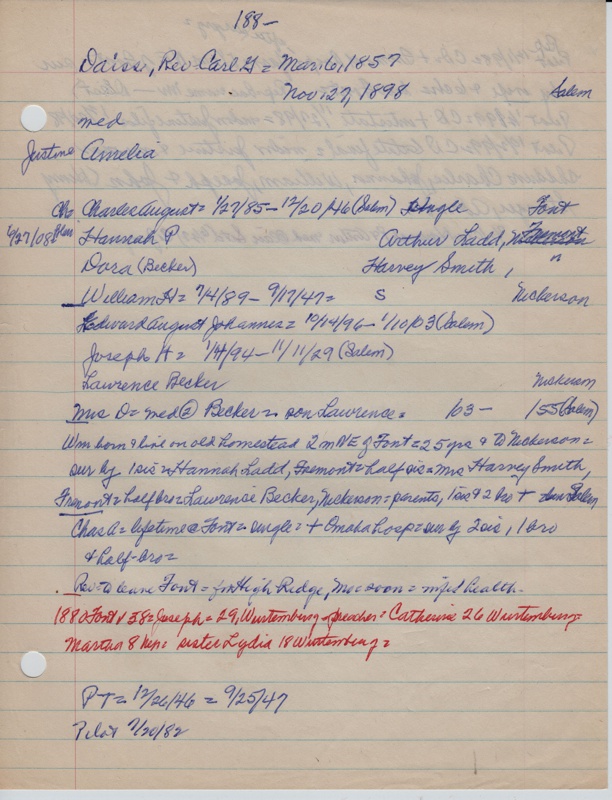 188-
Daiss, Rev. Carl G = Mar. 6, 1857
Nov. 27, 1898 Salem
med
Justine Amelia
Chs Charles August = 1/27/85 - 12/20/46 (Salem) Single Font
6/27/08 Hannah P Arthur Ladd, Fremont
Dora (Becker) Harvey Smith,
William H = 7/4/89 - 9/17/47 = S Nickerson
Edward August Johannes = 10/14/96 - 1/10/03 (Salem)
Joseph H = 1/4/94 - 11/11/29 (Salem)
Lawrence Becker Nickerson
Mrs D = med ② Becker = son Lawrence = 63 - 155 (Salem)
Wm born & liv on old homestead 2 m NE of Font = 25 yrs & to Nickerson =
sur by 1 sis = Hannah Ladd, Fremont = half sis = Mrs Harvey Smith,
Fremont = half bro = Lawrence Becker, Nickerson = parents, 1 sis & 2 bro + Salem
Chas A = lifetime @ Font = single = + Omaha hosp = sur by 2 sis, 1 bro
& half-bro =
. Rev = to leave Font = for High Ridge, Mo = soon = wife's health -
1880 Font V 58 = Joseph = 29, Wurtemburg = preacher = Catherine 26 Wurtemburg -
Martha 8 = sister Lydia 18 Wurtemburg =
PT = 12/26/46 = 9/25/47
Pilot 7/20/82